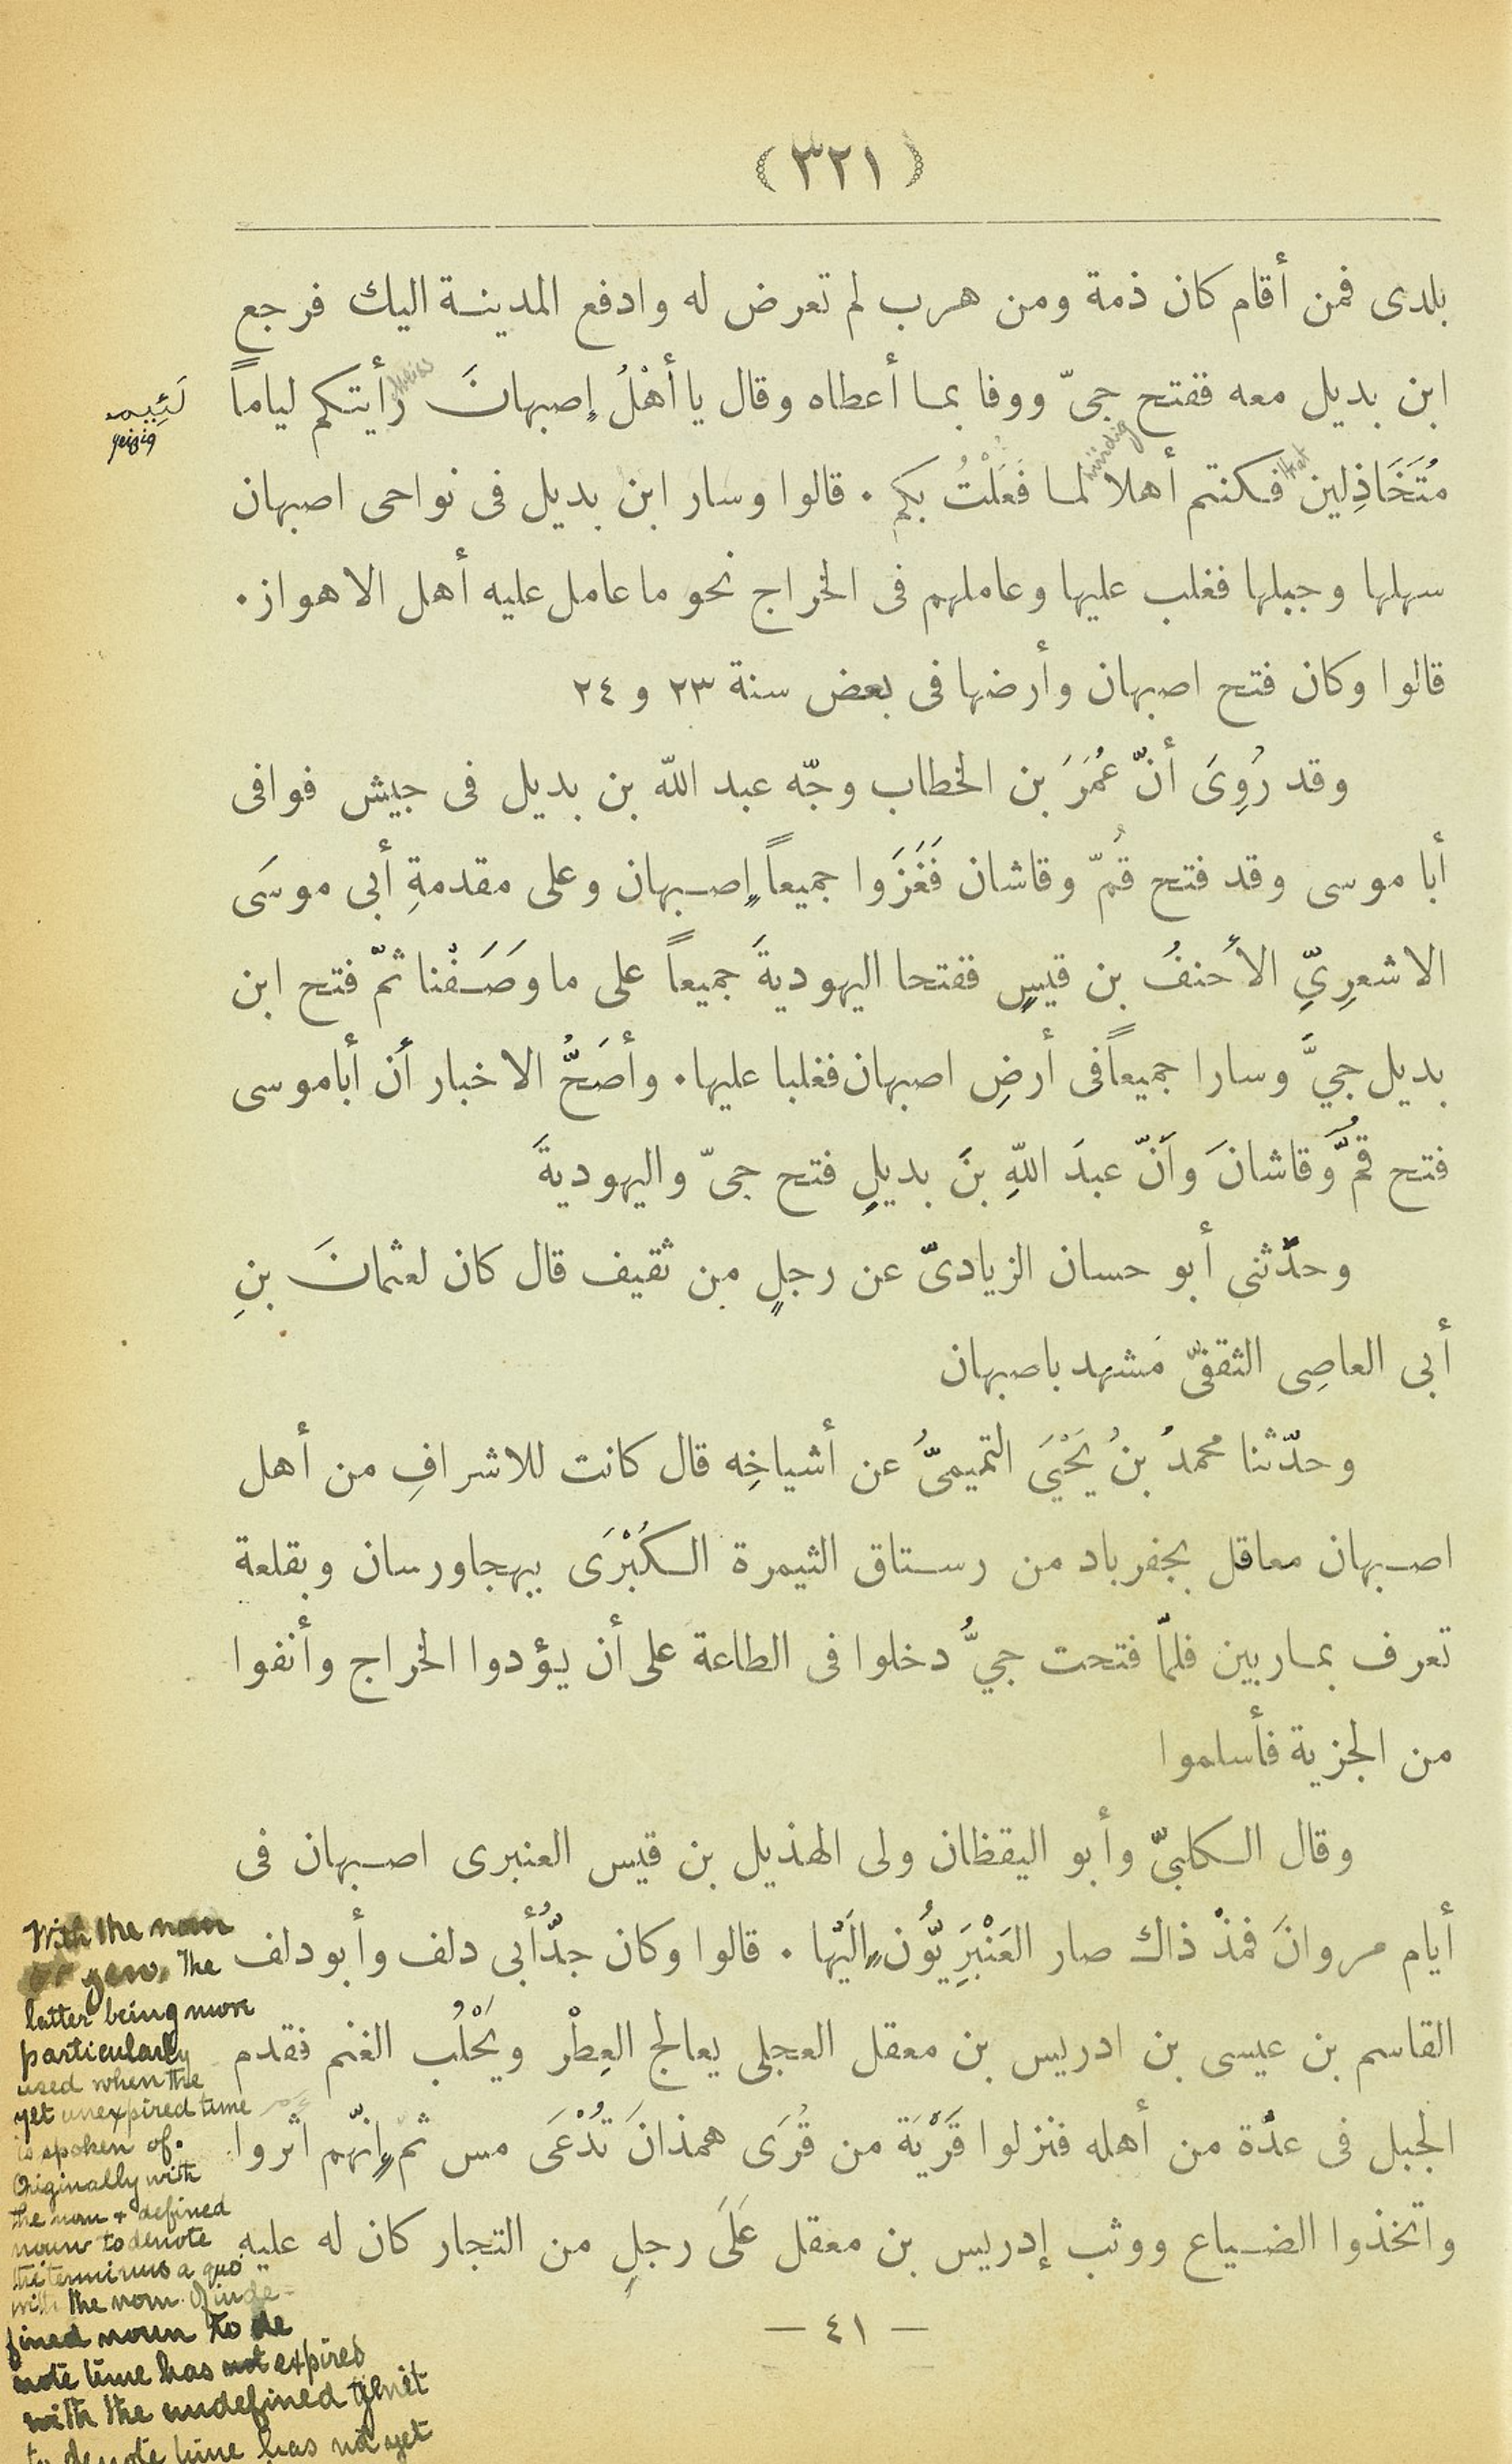 (٣٢١)
بلدى فمن أقام كان ذمة ومن هرب لم تعرض له وادفع المدينة اليك فرجع
ابن بديل معه ففتح جىّ ووفا بما أعطاه وقال يا أهْلُ إصبهانَ رأيتكم لياماً
لَئِيم
geizig
مُتَخَاذِلين فكنتم أهلا لما فَعَلْتُ بكم . قالوا وسار ابن بديل فى نواحى اصبهان
würdig
سهلها وجبلها فغلب عليها وعاملهم فى الخراج نحو ما عامل عليه أهل الاهواز .
قالوا وكان فتح اصبهان وأرضها فى بعض سنة ٢٣ و ٢٤
وقد رُوِىَ أنّ عُمَرَ بن الخطاب وجّه عبد اللّه بن بديل فى جيش فوافى
أبا موسى وقد فتح قُمّ وقاشان فَغَزَوا جميعاً إصبهان وعلى مقدمةِ أبى موسَى
الاشعرِىِّ الأحنفُ بن قيسٍ ففتحا اليهوديةَ جميعاً على ما وصَفْنا ثمّ فتح ابن
بديل جىَّ وسارا جميعاً فى أرضِ اصبهان فغلبا عليها . وأصَحُّ الاخبار أن أباموسى
فتح قُمَّ وقاشانَ وأنّ عبدَ اللّهِ بنَ بديلٍ فتح جىّ واليهوديةَ
وحدّثنى أبو حسان الزيادىّ عن رجلٍ من ثقيف قال كان لعثمانَ بنِ
أبى العاصِى الثقفىّ مَشهد باصبهان
وحدّثنا محمدُ بنُ يَحْيَى التميمىُّ عن أشياخِه قال كانت للاشرافِ من أهل
اصبهان معاقل بجفرباد من رستاق الثيمرة الكُبْرَى ببهجاورسان وبقلعة
تعرف بماربين فلمّا فتحت جىُّ دخلوا فى الطاعة على أن يؤدوا الخراج وأنفوا
من الجزية فأسلموا
وقال الكلبىّ وأبو اليقظان ولى الهذيل بن قيس العنبرى اصبهان فى
أيام مروانَ فمذْ ذاك صار العَنْبَرِيُّون إلَيْها . قالوا وكان جدُّ أبى دلف وأبو دلف
القاسم بن عيسى بن ادريس بن معقل العجلى يعالج العِطْر ويَحْلُب الغنم فقدم
الجبل فى عدّة من أهله فنزلوا قَرْيَة من قُرَى همذانَ تُدْعَى مس ثمّ إنّهم أثروا
واتخذوا الضياع ووثب إدريس بن معقل عَلَى رجلٍ من التجار كان له عليه
— ٤١ —
With the nom
or gen. The
latter being more
particularly
used when the
yet unexpired time
is spoken of.
Originally with
the nom + defined
noun to denote
the terminus a quo
with the nom. of inde-
fined noun to de
note time has not expired
with the undefined genit
to denote time has not yet